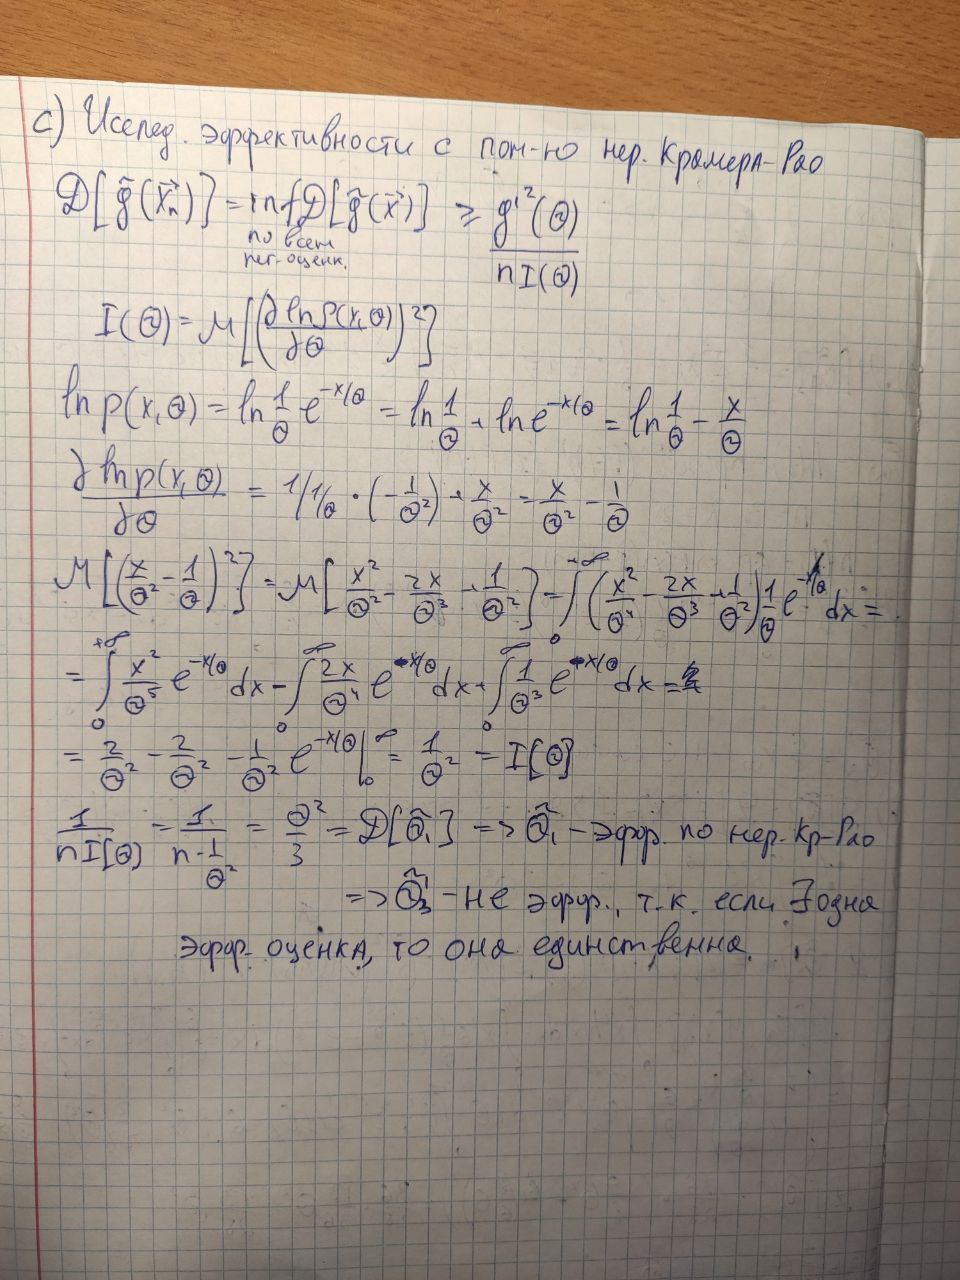 c) Исслед. эффективности с пом-ю нер. Крамера-Рао
D[g̃(x⃗ₙ)] = inf D[g̃(x⃗)] ≥ g'²(Θ) / nI(Θ)
по всем
рег. оценк.
I(Θ) = M[(∂ln p(x,Θ) / ∂Θ)²]
ln p(x,Θ) = ln 1/Θ e^(-x/Θ) = ln 1/Θ + ln e^(-x/Θ) = ln 1/Θ - x/Θ
∂ ln p(x,Θ) / ∂Θ = 1/1/Θ · (-1/Θ²) + x/Θ² = x/Θ² - 1/Θ
M[(x/Θ² - 1/Θ)²] = M[x²/Θ² - 2x/Θ³ + 1/Θ²] = ∫₀^(+∞) (x²/Θ⁴ - 2x/Θ³ + 1/Θ²) 1/Θ e^(-x/Θ) dx =
= ∫₀^(+∞) x²/Θ⁵ e^(-x/Θ) dx - ∫₀^∞ 2x/Θ⁴ e^(-x/Θ) dx + ∫₀^∞ 1/Θ³ e^(-x/Θ) dx =
= 2/Θ² - 2/Θ² - 1/Θ² e^(-x/Θ) |₀^∞ = 1/Θ² = I[Θ]
1 / nI[Θ] = 1 / (n · 1/Θ²) = Θ²/3 = D[Θ̃₁] => Θ̃₁ - эфф. по нер. Кр-Рао
=> Θ̃₃' - не эфф., т.к. если ∃ одна
эфф. оценка, то она единственна.